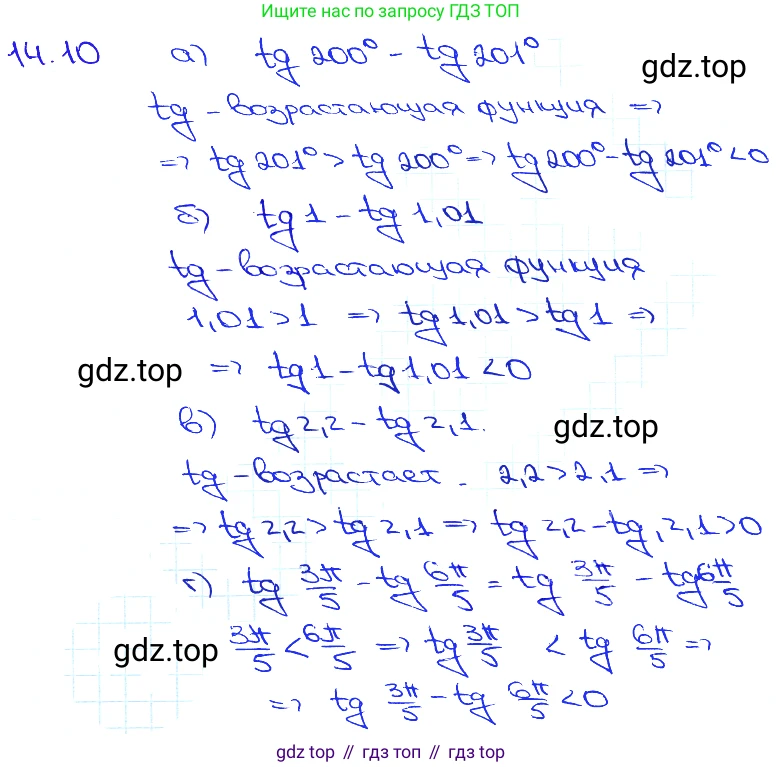 Ищите нас по запросу ГДЗ ТОП
14.10 а) tg 200° - tg 201°
gdz.top
tg - возрастающая функция =>
=> tg 201° > tg 200° => tg 200° - tg 201° < 0
б) tg 1 - tg 1,01
tg - возрастающая функция
1,01 > 1 => tg 1,01 > tg 1 =>
gdz.top => tg 1 - tg 1,01 < 0
в) tg 2,2 - tg 2,1.
gdz.top
tg - возрастает. 2,2 > 2,1 =>
=> tg 2,2 > tg 2,1 => tg 2,2 - tg 2,1 > 0
г) tg 3π/5 - tg 6π/5 = tg 3π/5 - tg 6π/5
gdz.top 3π/5 < 6π/5 => tg 3π/5 < tg 6π/5 =>
=> tg 3π/5 - tg 6π/5 < 0
gdz top // гдз топ // gdz top